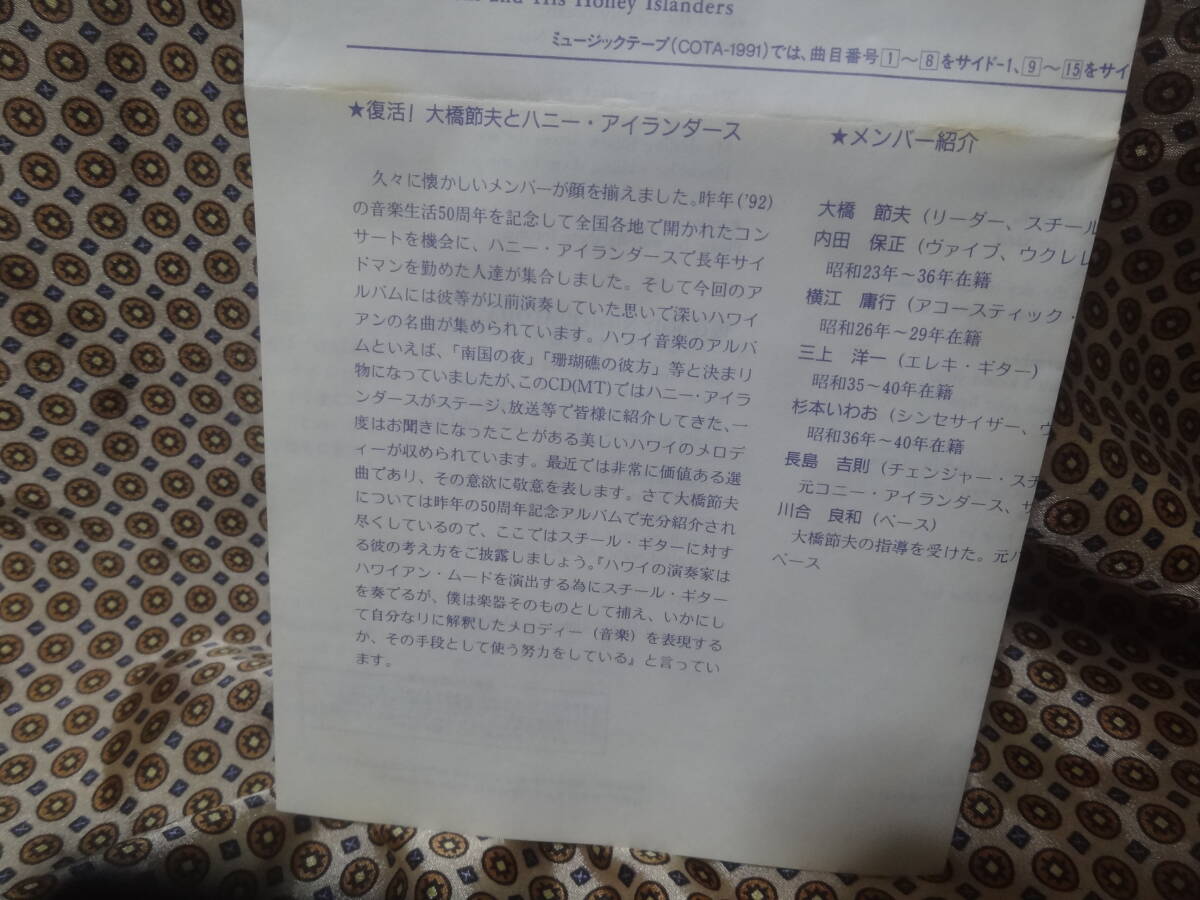 and His Honey Islanders
ミュージックテープ(COTA-1991)では、曲目番号1〜8をサイド-1、9〜15をサイ
★復活! 大橋節夫とハニー・アイランダース
久々に懐かしいメンバーが顔を揃えました。昨年('92)
の音楽生活50周年を記念して全国各地で開かれたコン
サートを機会に、ハニー・アイランダースで長年サイ
ドマンを勤めた人達が集合しました。そして今回のア
ルバムには彼等が以前演奏していた思いで深いハワイ
アンの名曲が集められています。ハワイ音楽のアルバ
ムといえば、「南国の夜」「珊瑚礁の彼方」等と決まり
物になっていましたが、このCD(MT)ではハニー・アイラ
ンダースがステージ、放送等で皆様に紹介してきた、一
度はお聞きになったことがある美しいハワイのメロデ
ィーが収められています。最近では非常に価値ある選
曲であり、その意欲に敬意を表します。さて大橋節夫
については昨年の50周年記念アルバムで充分紹介され
尽くしているので、ここではスチール・ギターに対す
る彼の考え方をご披露しましょう。『ハワイの演奏家は
ハワイアン・ムードを演出する為にスチール・ギター
を奏でるが、僕は楽器そのものとして捕え、いかにし
て自分なりに解釈したメロディー(音楽)を表現する
か、その手段として使う努力をしている』と言ってい
ます。
★メンバー紹介
大橋 節夫(リーダー、スチール
内田 保正(ヴァイブ、ウクレレ
昭和23年〜36年在籍
横江 庸行(アコースティック・
昭和26年〜29年在籍
三上 洋一(エレキ・ギター)
昭和35〜40年在籍
杉本いわお(シンセサイザー、ヴ
昭和36年〜40年在籍
長島 吉則(チェンジャー・スチ
元コニー・アイランダース、サ
川合 良和(ベース)
大橋節夫の指導を受けた。元ハ
ベース